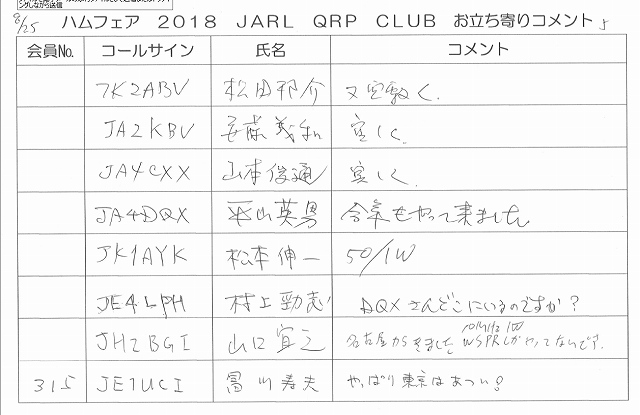 8/25 ハムフェア 2018 JARL QRP CLUB お立ち寄りコメント 5
会員No. コールサイン 氏名 コメント
7K2ABV 松田邦介 又宜敷く.
JA2KBV 安藤義和 宜しく.
JA4CXX 山本俊通 宜しく.
JA4DQX 平山英男 今年もやって来ました
JK1AYK 松本伸一 50/1W
JE4LPH 村上勁志 DQXさんどこにいるのですか?
JH2BGI 山口宜之 名古屋からきました 10MHz WSPRしかやってないです.
315 JE1UCI 冨川寿夫 やっぱり東京はあつい?